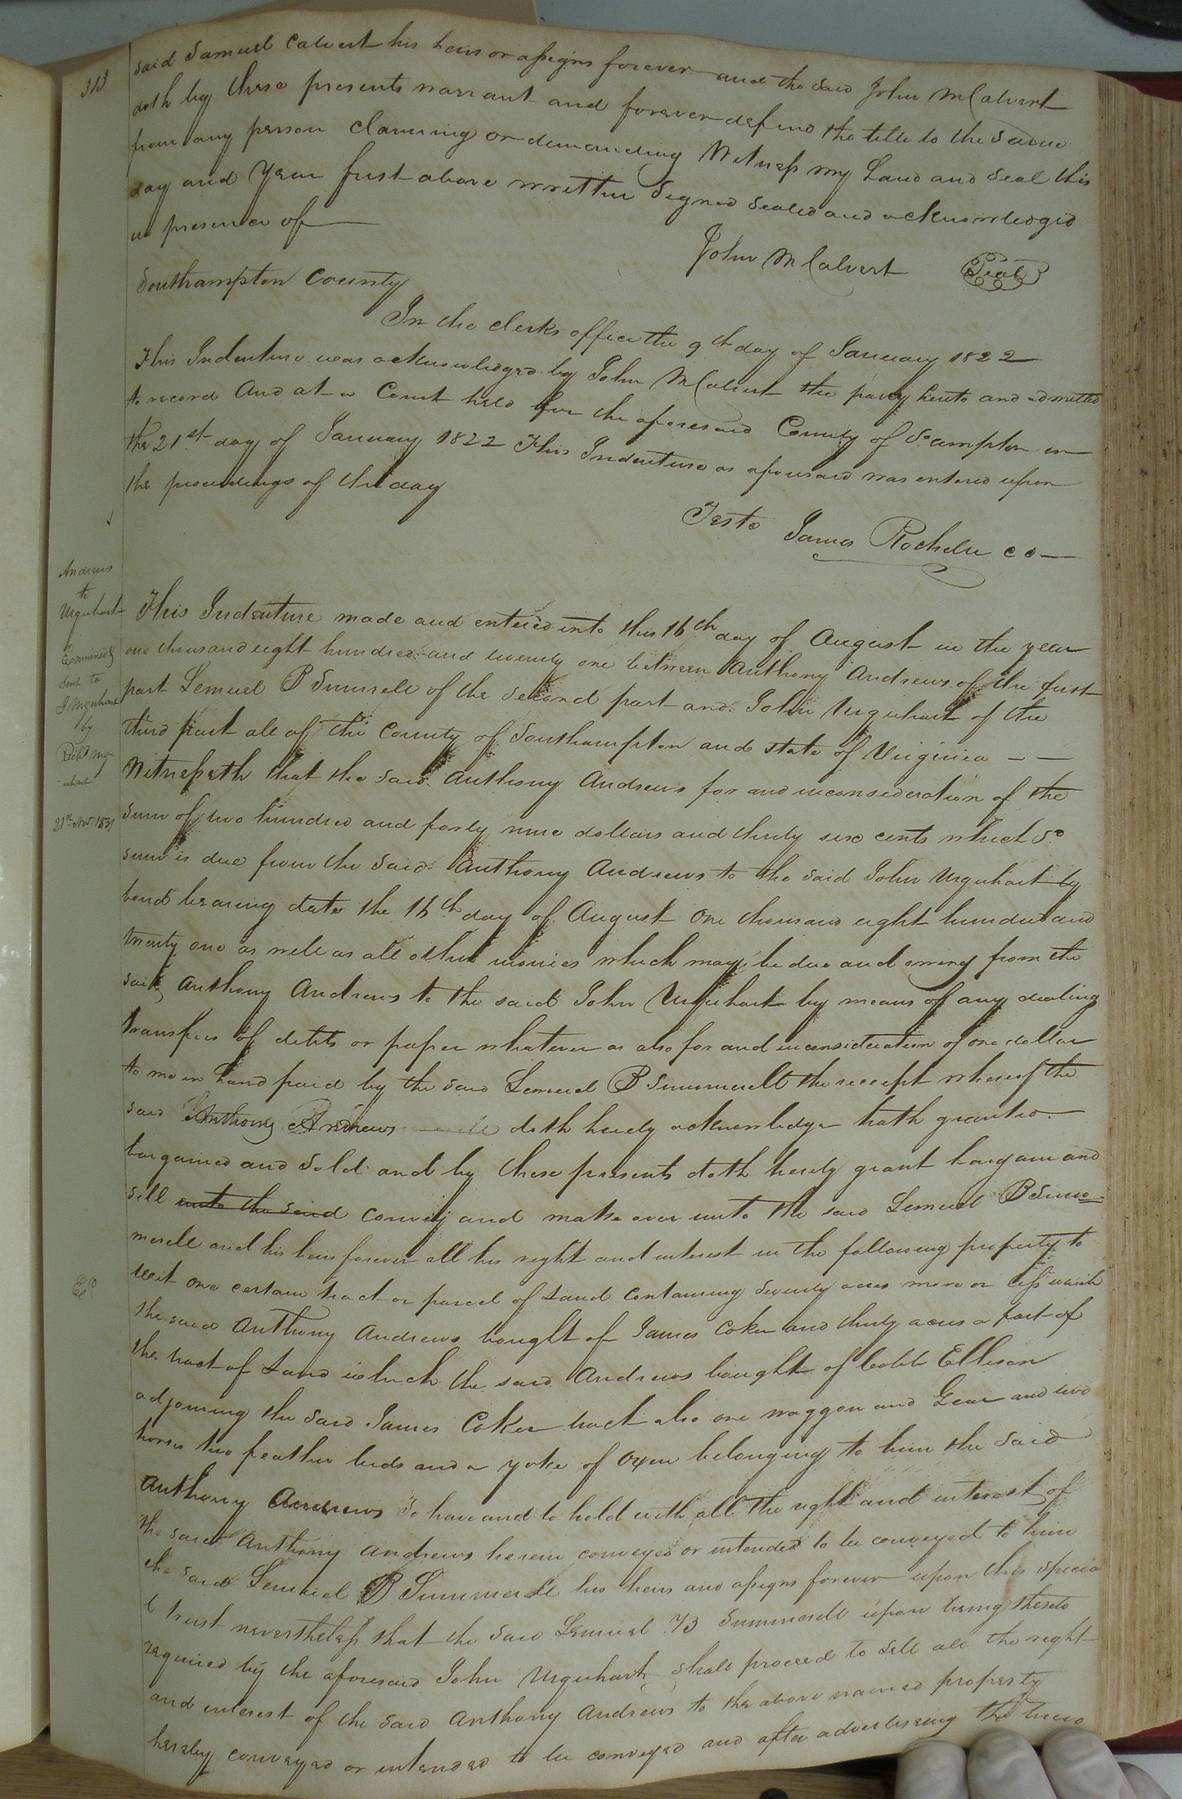 313
said Samuel Calvert his heirs or assigns forever and the said John M Calvert
doth by these presents warrant and forever defend the title to the same
from any person claiming or demanding Witness my Hand and Seal this
day and Year first above written Signed Sealed and acknowledged
in presence of
John M Calvert Seal
Southampton County
In the clerks office the 9th day of January 1822
This Indenture was acknowledged by John M Calvert the party hereto and admitted
to record And at a Court held for the aforesaid County of So ampton on
the 21st day of January 1822 This Indenture as aforesaid was entered upon
the proceedings of the day
Teste James Rochelle cs
Andrews
to
Urquhart
Examined &
sent to
J Urquhart
by
21st Nov. 1831
This Indenture made and entered into this 16th day of August in the year
one thousand eight hundred and twenty one between Anthony Andrews of the first
part Lemuel B Summrell of the second part and John Urquhart of the
third part all of the County of Southampton and state of Virginia
Witnesseth that the said Anthony Andrews for and in consideration of the
sum of two hundred and forty nine dollars and thirty six cents which sd
sum is due from the said Anthony Andrews to the said John Urquhart by
bond bearing date the 16th day of August one thousand eight hundred and
twenty one as well as all other monies which may be due and owing from the
said Anthony Andrews to the said John Urquhart by means of any dealing
transfers of debts or paper whatever as also for and in consideration of one dollar
to me in hand paid by the said Lemuel B Summerell the receipt whereof the
said Anthony Andrews doth hereby acknowledge hath granted
bargained and sold and by these presents doth hereby grant bargain and
sell unto the said convey and make over unto the said Lemuel B Sum
merell and his heirs forever all his right and interest in the following property to
wit one certain tract or parcel of Land containing seventy acres more or less which
the said Anthony Andrews bought of James Coker and thirty acres a part of
the tract of Land which the said Andrews bought of Cobb Ellison
adjoining the said James Coker tract also one waggon and Gear and two
horses two feather beds and a yoke of Oxen belonging to him the said
Anthony Andrews To have and to hold with all the right and interest of
the said Anthony Andrews herein conveyed or intended to be conveyed to him
the said Lemuel B Summerell his heirs and assigns forever upon this specia
l trust nevertheless that the said Lemuel B Summerell upon being thereto
required by the aforesaid John Urquhart shall proceed to sell all the right
and interest of the said Anthony Andrews to the above named property
hereby conveyed or intended to be conveyed and after advertising the time